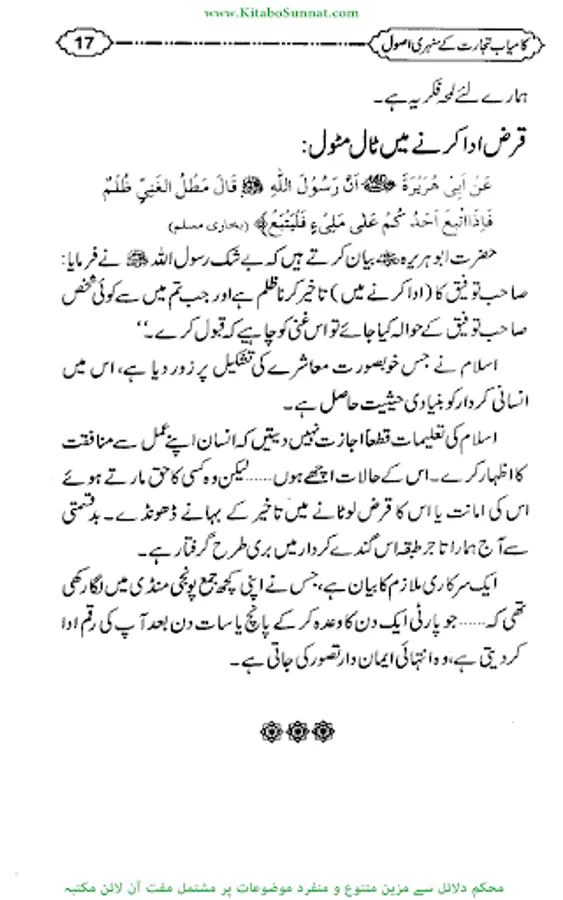 www.KitaboSunnat.com
کامیاب تجارت کے سنہری اصول 17
ہمارے لئے لمحہ فکریہ ہے۔
قرض ادا کرنے میں ٹال مٹول:
عَنْ اَبِیْ هُرَيْرَةَ ﷺ اَنَّ رَسُوْلَ اللهِ ﷺ قَالَ مَطْلُ الْغَنِيِّ ظُلْمٌ
فَإِذَا اتْبِعَ اَحَدُ كُمْ عَلٰى مَلِيْءٍ فَلْيَتْبَعْ﴾ (بخاری مسلم)
حضرت ابو ہریرہ بیان کرتے ہیں کہ بے شک رسول اللہ ﷺ نے فرمایا:
صاحب توفیق کا (ادا کرنے میں) تاخیر کرنا ظلم ہے اور جب تم میں سے کوئی شخص
صاحب توفیق کے حوالہ کیا جائے تو اس غنی کو چاہیے کہ قبول کرے۔‘‘
اسلام نے جس خوبصورت معاشرے کی تشکیل پر زور دیا ہے، اس میں
انسانی کردار کو بنیادی حیثیت حاصل ہے۔
اسلام کی تعلیمات قطعاً اجازت نہیں دیتیں کہ انسان اپنے عمل سے منافقت
کا اظہار کرے۔ اس کے حالات اچھے ہوں...... لیکن وہ کسی کا حق مارتے ہوئے
اس کی امانت یا اس کا قرض لوٹانے میں تاخیر کے بہانے ڈھونڈے۔ بدقسمتی
سے آج ہمارا تاجر طبقہ اس گندے کردار میں بری طرح گرفتار ہے۔
ایک سرکاری ملازم کا بیان ہے، جس نے اپنی کچھ جمع پونجی منڈی میں لگا رکھی
تھی کہ...... جو پارٹی ایک دن کا وعدہ کر کے پانچ یا سات دن بعد آپ کی رقم ادا
کر دیتی ہے، وہ انتہائی ایمان دار تصور کی جاتی ہے۔
محکم دلائل سے مزین متنوع و منفرد موضوعات پر مشتمل مفت آن لائن مکتبہ